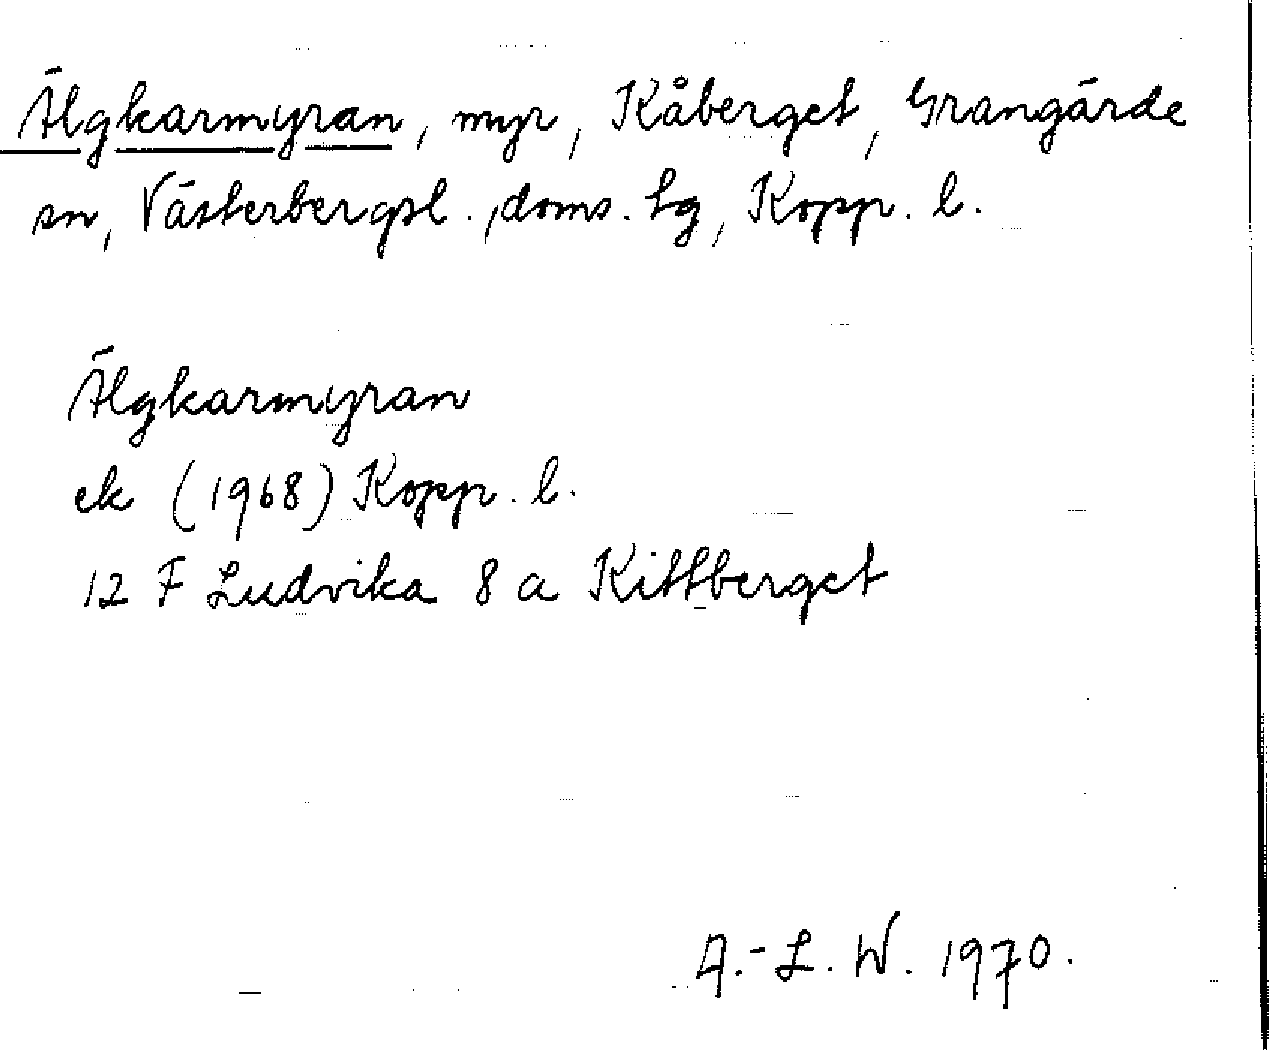 Älgkarmyran, myr, Kåberget, Grangärde
sn, Västerbergsl., doms. hg, Kopp. l.
Älgkarmyran
ek (1968) Kopp. l.
12 F Ludvika 8 a Kittberget
A.-L. W. 1970.